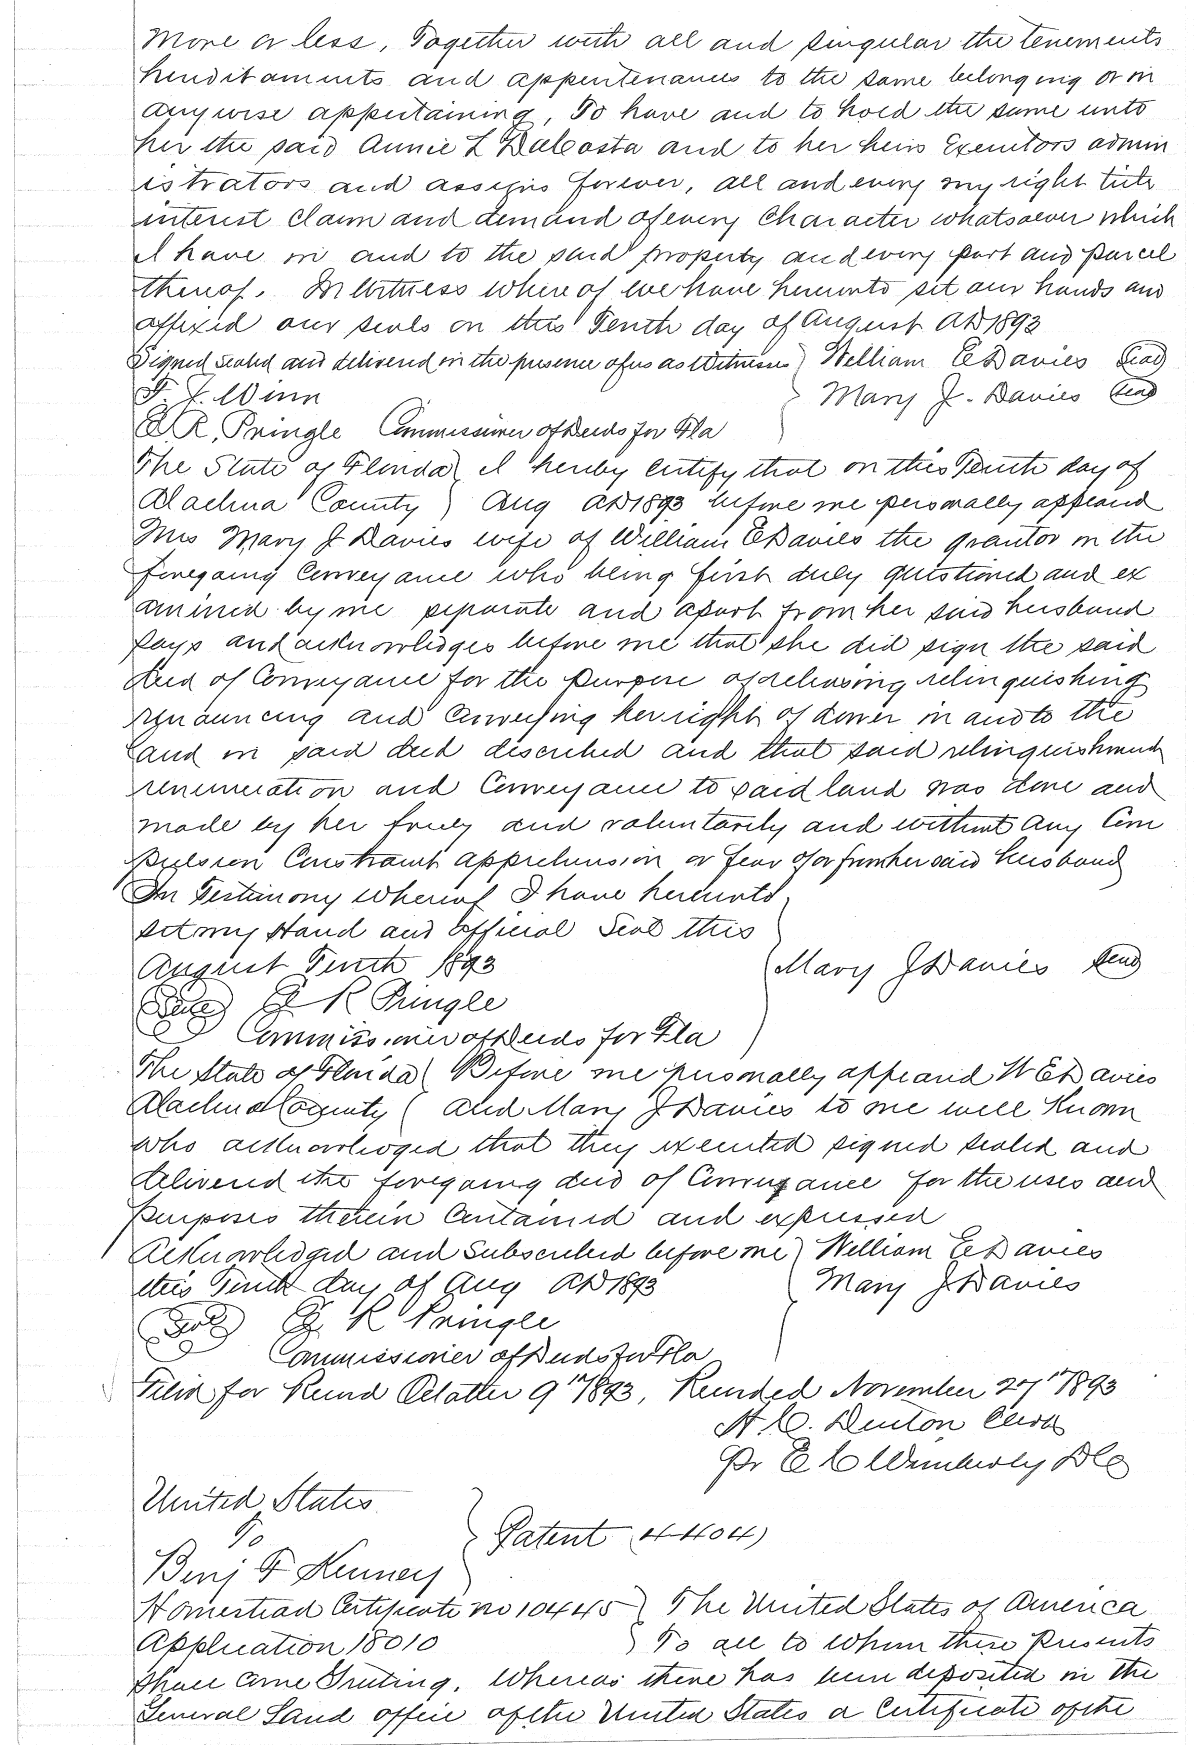 more or less, Together with all and singular the tenements
hereditaments and appurtenances to the same belonging or in
anywise appertaining, To have and to hold the same unto
her the said Annie L DaCosta and to her heirs Executors admin
istrators and assigns forever, all and every my right title
interest claim and demand of every character whatsoever which
I have in and to the said property and every part and parcel
thereof. In Witness whereof we have hereunto set our hands and
affixed our seals on this Tenth day of August AD 1893
Signed sealed and delivered in the presence of us as Witnesses) William E Davies (Seal)
F. J. Winn Mary J. Davies (Seal)
R. Pringle Commissioner of Deeds for Fla
The State of Florida( I hereby certify that on this Tenth day of
Alachua County ) Aug AD 1893 before me personally appeared
Mrs Mary J Davies wife of William E Davies the grantor in the
foregoing Conveyance who being first duly questioned and ex
amined by me separate and apart from her said husband
says and acknowledges before me that she did sign the said
deed of Conveyance for the purpose of releasing relinquishing
renouncing and Conveying her right of dower in and to the
land in said deed described and that said relinquishment
renunciation and Conveyance to said land was done and
made by her freely and voluntarily and without any Com
pulsion Constraint apprehension or fear of or from her said husband
In Testimony whereof I have hereunto
set my Hand and official Seal this
August Tenth 1893 Mary J Davies (Seal)
(Seal) R Pringle
Commissioner of Deeds for Fla
The State of Florida( Before me personally appeared W E Davies
Alachua County ( and Mary J Davies to me well known
who acknowledged that they executed signed sealed and
delivered the foregoing deed of Conveyance for the uses and
purposes therein Contained and expressed
Acknowledged and Subscribed before me) William E Davies
this Tenth day of Aug AD 1893 Mary J Davies
(Seal) R Pringle
Commissioner of Deeds for Fla
Filed for Record October 9" 1893, Recorded November 27" 1893
H. C. Denton Clerk
Pr E C Wimberly DC
United States
To
Patent (4404)
Benj F Kenney
Homestead Certificate no 10445 } The United States of America
Application 18010 ) To all to whom these Presents
shall Come Greeting. Whereas there has been deposited in the
General Land office of the United States a Certificate of the